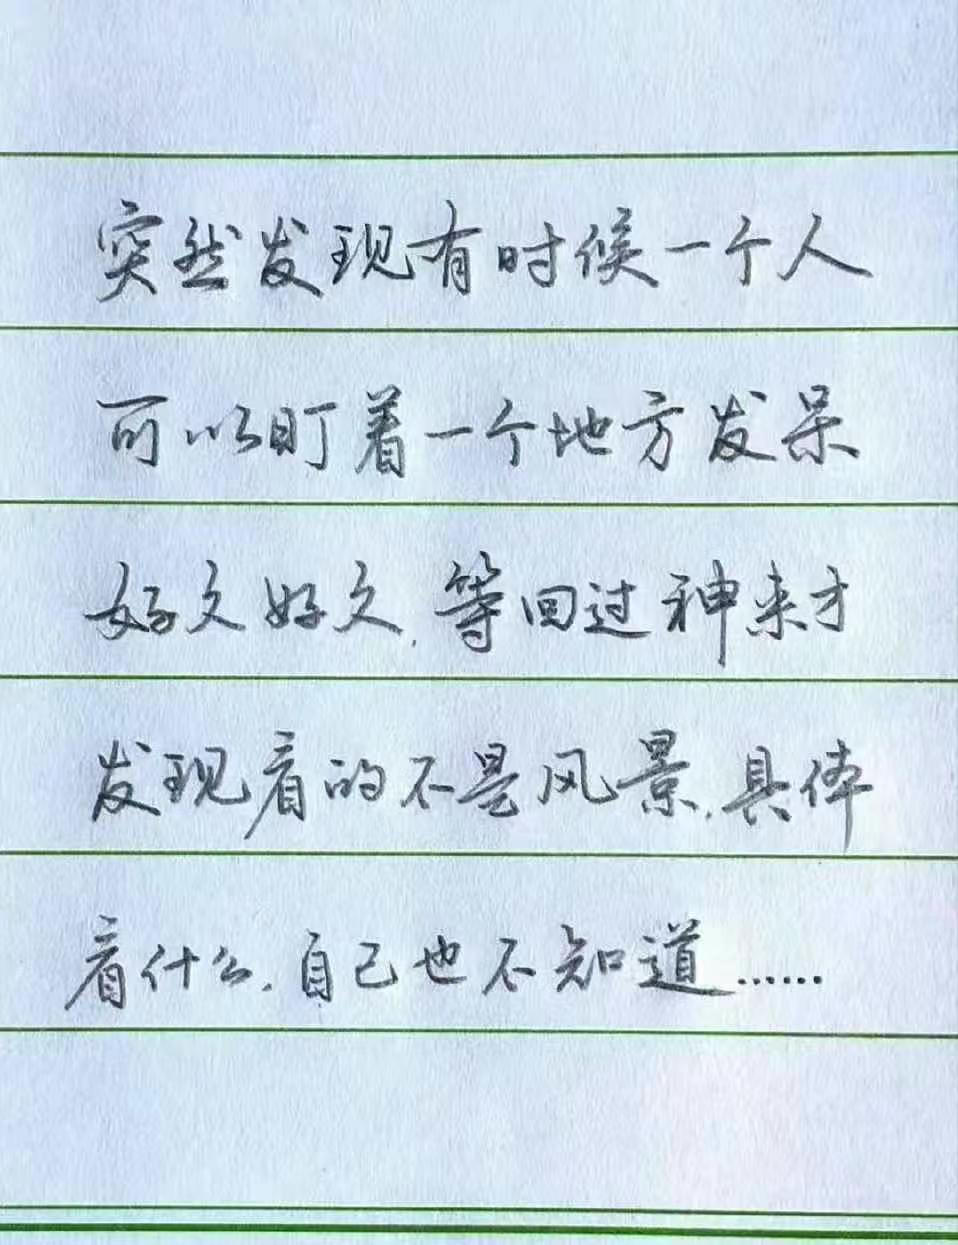 突然发现有时候一个人
可以盯着一个地方发呆
好久好久,等回过神来才
发现看的不是风景,具体
看什么,自己也不知道……